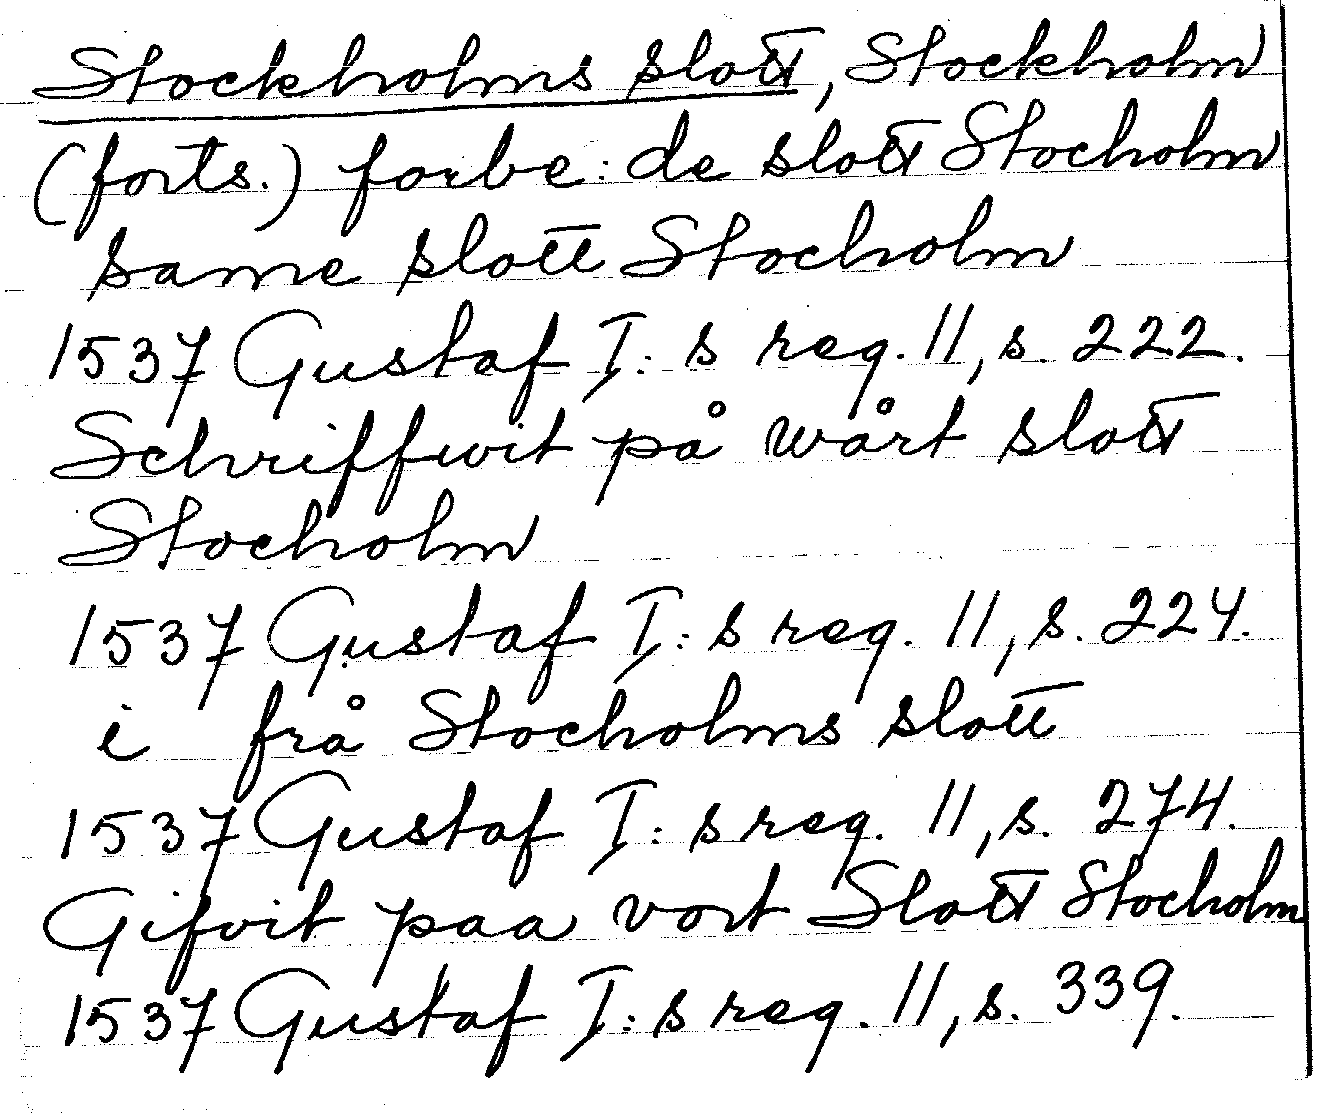 Stockholms slott, Stockholm
(forts.) forbe: de slott Stocholm
same slott Stocholm
1537 Gustaf I: s reg. 11, s. 222.
Schriffwit på wårt slott
Stocholm
1537 Gustaf I: s reg. 11, s. 224.
i frå Stocholms slott
1537 Gustaf I: s reg. 11, s. 274.
Gifvit paa vort Slott Stocholm
1537 Gustaf I: s reg. 11, s. 339.